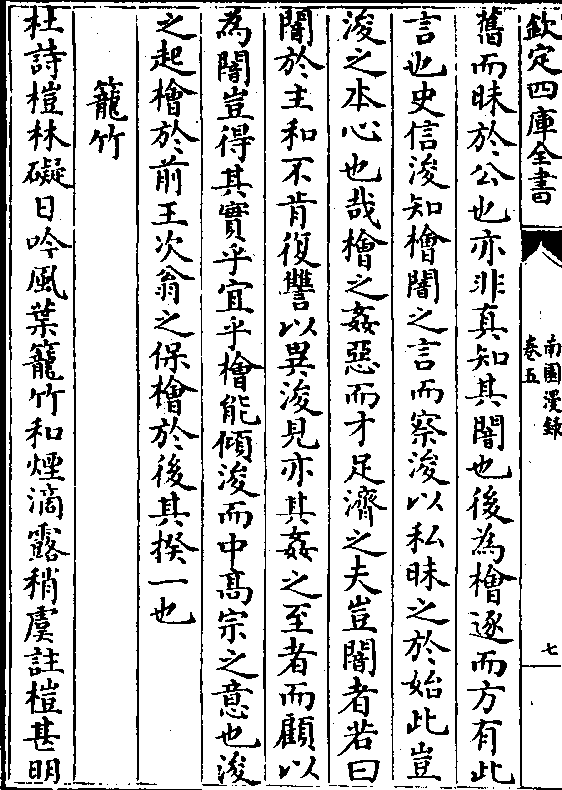 欽定四庫全書
南園漫録
卷五
七
舊而昧於公也亦非真知其闇也後為檜逐而方有此
言也史信浚知檜闇之言而察浚以私昧之於始此豈
浚之本心也哉檜之姦惡而才足濟之夫豈闇者若曰
闇於主和不肯復讐以異浚見亦其姦之至者而顧以
為闇豈得其實乎宜乎檜能傾浚而中髙宗之意也浚
之起檜於前王次翁之保檜於後其揆一也
籠竹
杜詩榿林礙日吟風葉籠竹和煙滴露稍虞註榿甚明